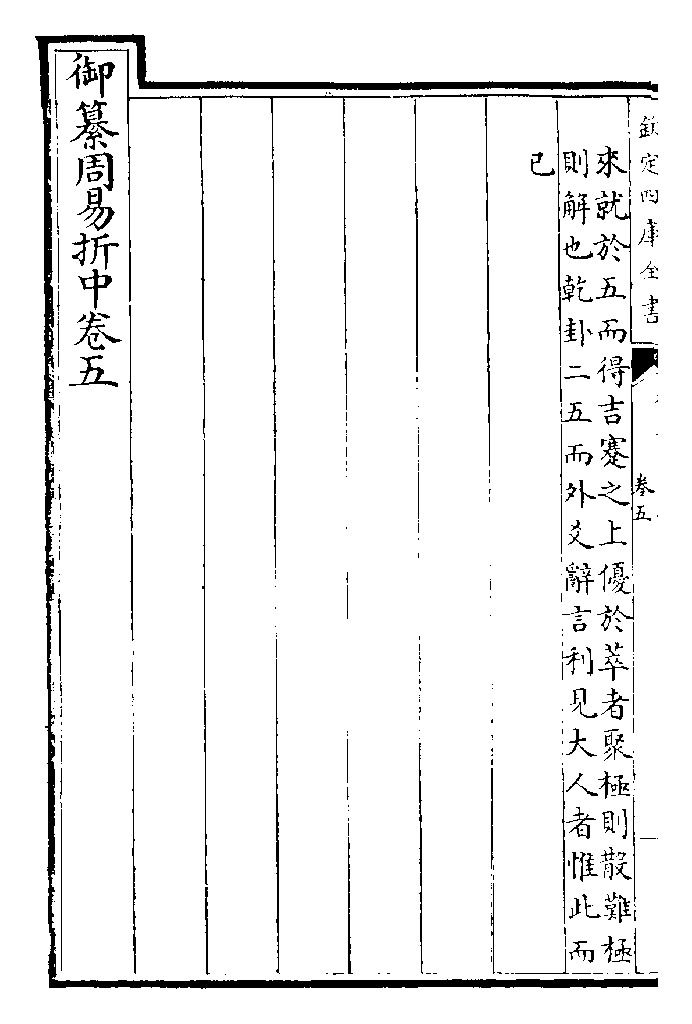 欽定四庫全書
卷五
來就於五而得吉蹇之上優於萃者聚極則散難極
則解也乾卦二五而外爻辭言利見大人者惟此而
已
御纂周易折中卷五